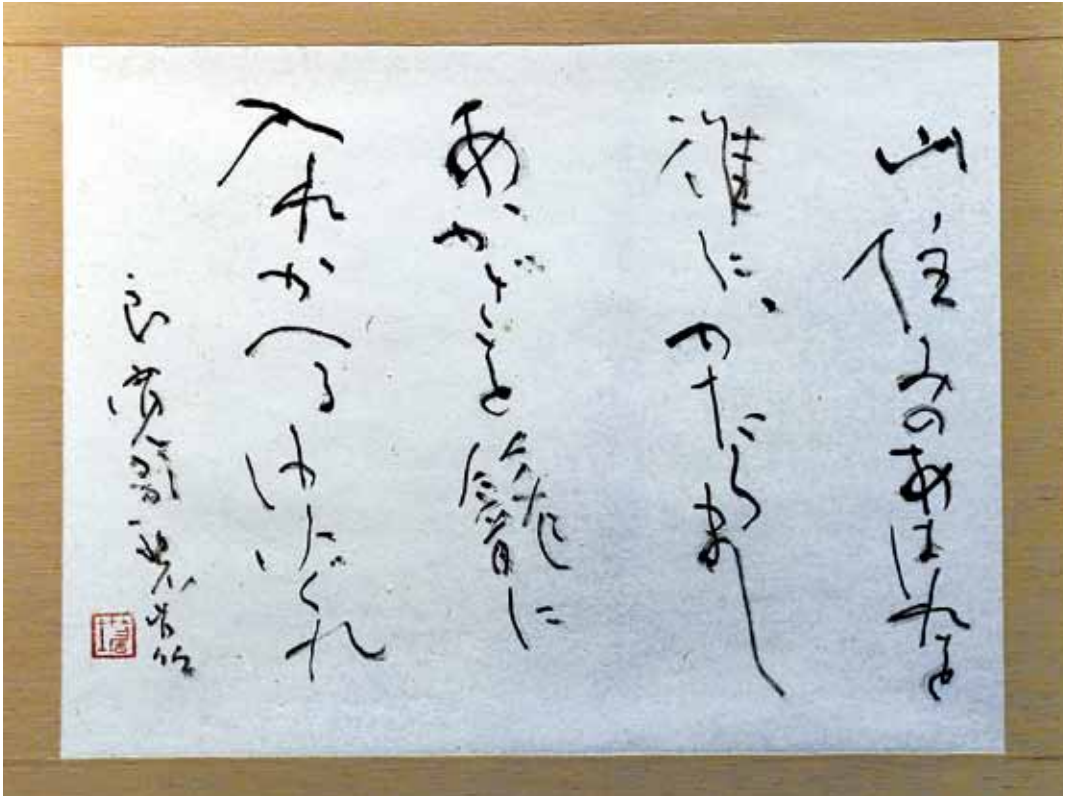 山住みのあはれを
誰にかたらまし
あかざを籠に
入れかへるゆふぐれ
良寛